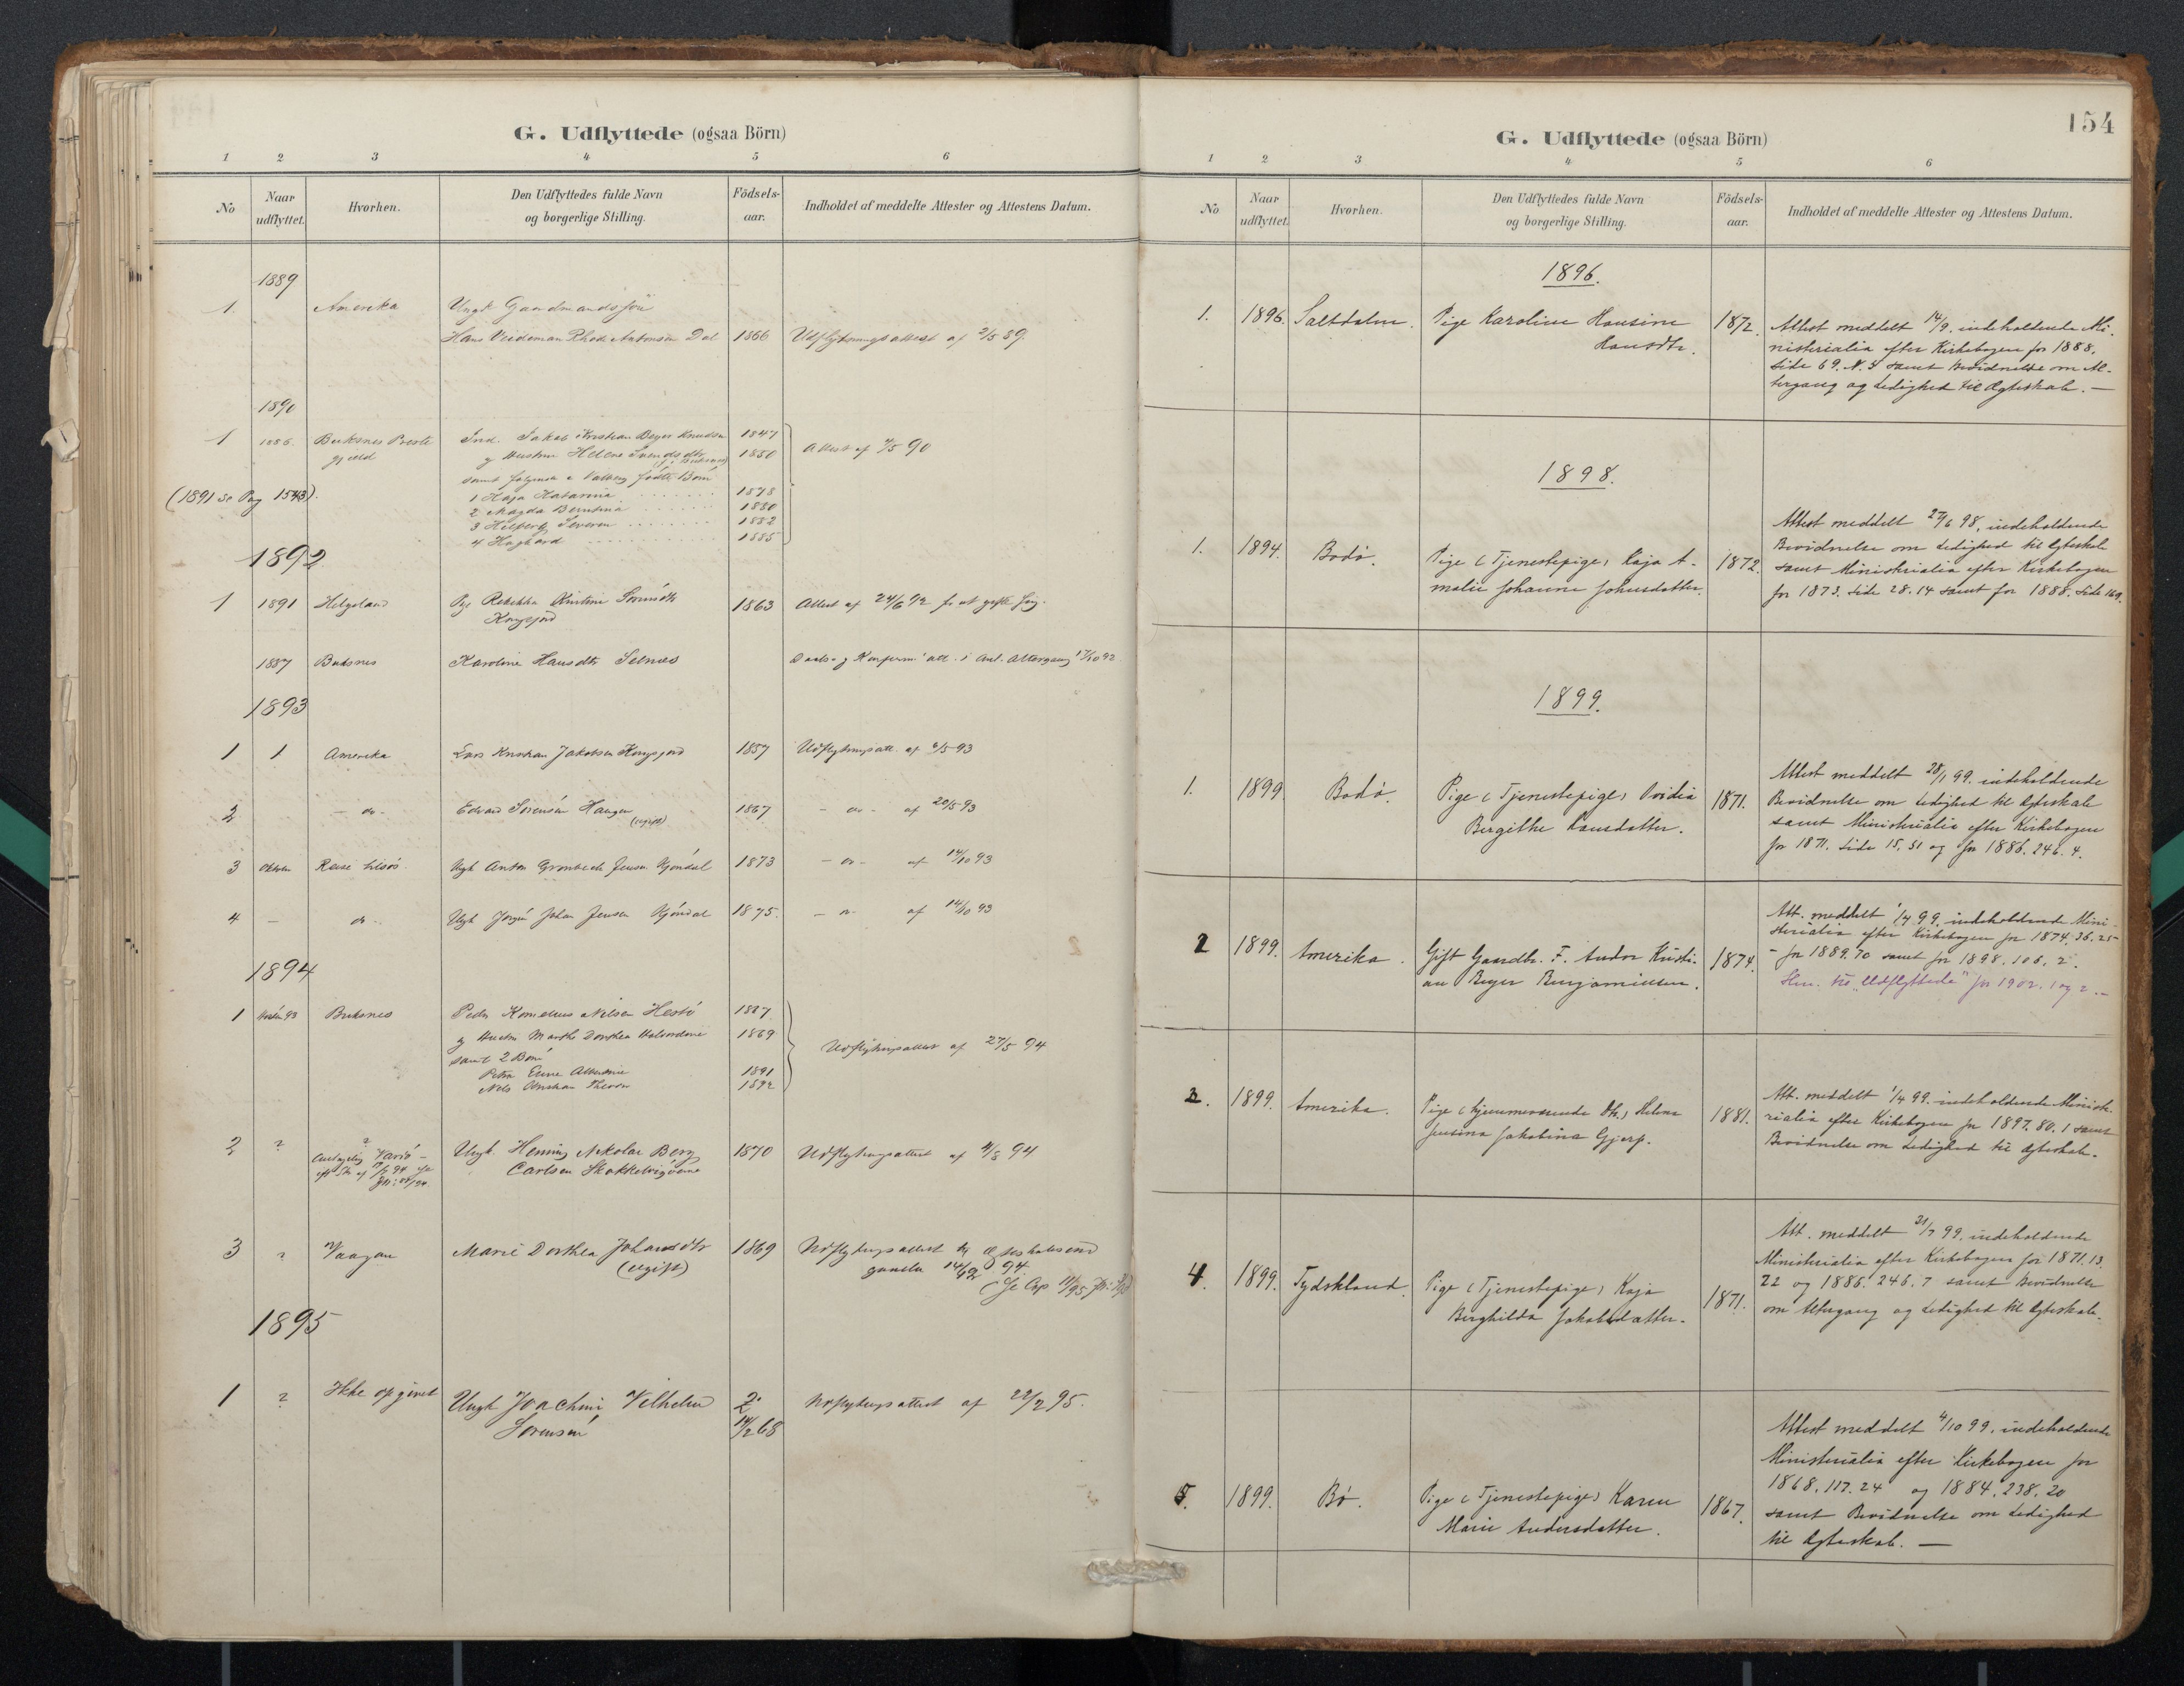 G. Udflyttede (ogsaa Börn)
1 2 3 4 5 6
No
Naar udflyttet.
Hvorhen.
Den Udflyttedes fulde Navn
og borgerlige Stilling.
Födsels-
aar.
Indholdet af meddelte Attester og Attestens Datum.
1889
1 Amerika Ungk Gaardmandssön
Hans Antonsen Dal 1866 Udflytningsattest af 2/5 89.
1890
1 1886. Buksnes Preste Ind. Jakob Kristian Beyer Knudsen 1847
gjeld og Hustru Helene Svendsdtr 1850 Attest af 90
samt følgende i fødte Børn
(1891 se Pag 154B). 1 Kaja Katarina 1878
2 Magda Berntina 1880
3 Severin 1882
4 Haghard 1885
1892
1 1891 Helgeland Pge Rebekka Kristine Sørensdtr 1863 Attest af 24/6 92 for at gifte sig.
1887 Buksnes Karoline Hansdtr Selnæs Daabs- og Konfirm. att. Altergang 17/10 92.
1893
1 1 Amerika Lars Kristian Jakobsen 1857 Udflytningsatt. af 6/5 93
2 - do - Edvard Sørensen Haugen 1867 - do - af 20/5 93
(ugift)
3 Oktober Ungk Anton Grønbech Jensen Kjøndal 1873 - do - af 14/10 93
4 - do - Ungk Jørgen Johan Jensen Kjøndal 1875. - do - af 14/10 93
1894
1 93 Buksnes Peder Kornelius Nilsen Hestø 1867
og Hustru Marth Dorthea 1869
samt 2 Børn Udflytningsattest af 27/5 94
Petra 1891
Nils Kristian 1892
2 ? ? Ungk. Henning Nikolai Berg 1870 Udflytningsattest af 4/8 94
Vardø - Carlsen
3 ? Vaagan Marie Dorthea Johansdtr 1869 Udflytningsattest og Ægteskabs
(ugift) 94
1895
1 ? Ikke opgivet Ungk Joachim Vilhelm 2.
Sørensen 14/2 68 Udflytningsattest af 22/2 95.
154
G. Udflyttede (ogsaa Börn)
1 2 3 4 5 6
No
Naar
udflyttet.
Hvorhen.
Den Udflyttedes fulde Navn
og borgerlige Stilling.
Födsels-
aar.
Indholdet af meddelte Attester og Attestens Datum.
1896.
1. 1896. Saltdalen. Pige Karoline Hansine 1872. Attest meddelt 14/9. indeholdende Mi-
Hansdtr. nisterialia efter Kirkebogen for 1888.
Side 69. N. 4 samt Bevidnelse om Al-
tergang og Ledighed til Ægteskab. —
1898.
Attest meddelt 27/6 98, indeholdende
1. 1894. Bodø. Pige (Tjenestepige) Kaja A- 1872. Bevidnelse om Ledighed til Ægteskab
malie Johanna Johnsdatter. samt Ministerialia efter Kirkebogen
for 1873. Side 28. 14 samt for 1888. Side 169.
1899.
1. 1899. Bodø. Pige (Tjenestepige) Ovidia 1871. Attest meddelt 28/1 99. indeholdende
Bergithe Hansdatter. Bevidnelse om Ledighed til Ægteskab
samt Ministerialia efter Kirkebogen
for 1871. Side 15. 51 og for 1886. 246. 4.
2 1899. Amerika. Gift Gaardbr. F. Andor Kristi- 1874. Att. meddelt 1/4 99. indeholdende Mini-
an Beyer Benjaminsen. sterialia efter Kirkebogen for 1874. 36. 25
- for 1889. 70 samt for 1898. 106. 2.
Hen. til "Udflyttede" for 1902. 1 og 2. —
3. 1899. Amerika. Pige (hjemmeværende Dtr.) Helena 1881. Att. meddelt 1/4 99. indeholdende Ministe-
Jensina Jakobina Gjerp. rialia efter Kirkebogen for 1897. 80. 1 samt
Bevidnelse om Ledighed til Ægteskab.
4. 1899. Tydskland. Pige (Tjenestepige) Kaja 1871. Att. meddelt 31/7 99. indeholdende
Berghilda Jakobsdatter. Ministerialia efter Kirkebogen for 1871. 13.
22 og 1886. 246. 7 samt Bevidnelse
om Altergang og Ledighed til Ægteskab.
5. 1899. Bø. Pige (Tjenestepige) Karen 1867. Attest meddelt 4/10 99. indeholdende
Marie Andersdatter. Ministerialia efter Kirkebogen for
1868. 117. 24 og 1884. 238. 20
samt Bevidnelse om Ledighed
til Ægteskab. —